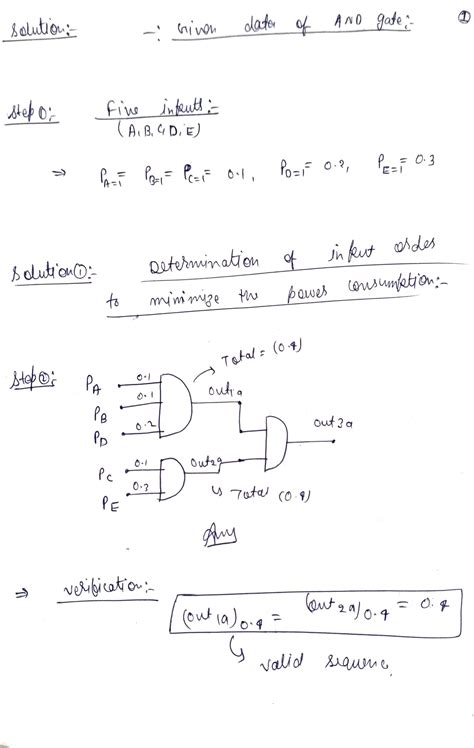 Solution:- -: Given data of AND gate:- ①
Step 0:- Five inputs:-
(A, B, C, D, E)
⇒ P_A=1 = P_B=1 = P_C=1 = 0.1, P_D=1 = 0.2, P_E=1 = 0.3
Solution①:- Determination of input order
to minimize the power consumption:-
Step①:
Total = (0.4)
P_A 0.1
P_B 0.1
P_D 0.2
out1a
out3a
P_C 0.1
P_E 0.3
out2a
Total (0.4)
Ans
⇒ verification:-
(out1a)0.4 = (out2a)0.4 = 0.4
valid sequence